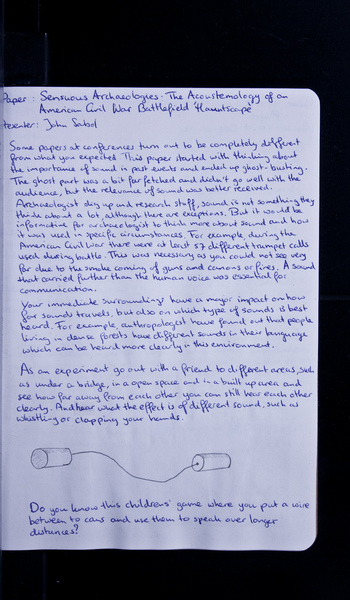 Paper: Sensuous Archaeologies - The Acoustemology of an
American Civil War Battlefield 'Hauntscape'
resenter: John Sabol
Some papers at conferences turn out to be completely different
from what you expected. This paper started with thinking about
the importance of sound in past events and ended up ghost-busting.
The ghost part was a bit far fetched and didn't go well with the
audience, but the relevance of sound was better received.
Archaeologist dig up and research stuff, sound is not something they
think about a lot, although there are exceptions. But it would be
informative for archaeologist to think more about sound and how
it was used in specific circumstances. For example, during the
American Civil War there were at least 57 different trumpet calls
used during battle. This was necessary as you could not see very
far due to the smoke coming of guns and canons or fires. A sound
that carried further than the human voice was essential for
communication.
Your immediate surroundings have a major impact on how
far sounds travels, but also on which type of sounds is best
heard. For example, anthropologist have found out that people
living in dense forests have different sounds in their language
which can be heard more clearly in this environment.
As an experiment go out with a friend to different areas, such
as under a bridge, in a open space and in a built up area and
see how far away from each other you can still hear each other
clearly. And hear what the effect is of different sound, such as
whistling or clapping your hands.
Do you know this childrens' game where you put a wire
between to cans and use them to speak over longer
distances?